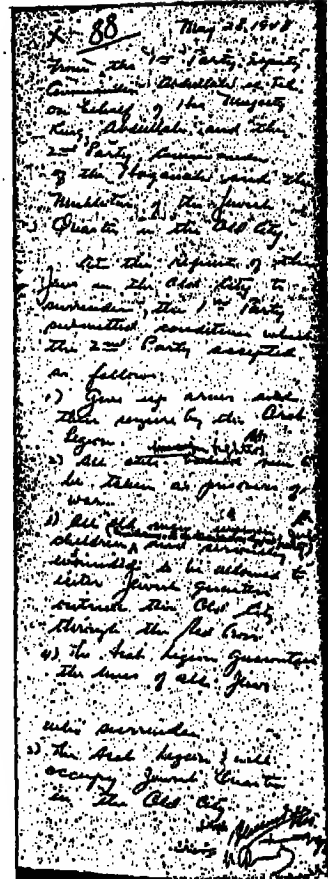 X 88 May 28, 1948
From the 1st Party, Deputy
Commander Abdullah el Tel
on behalf of His Majesty
King Abdullah and the
2nd Party Commander
of the Haganah and the
Mukhtar of the Jewish
Quarter in the Old City
At the request of the
Jews in the Old City to
surrender, the 1st Party
submitted conditions which
the 2nd Party accepted
as follows
1) Give up arms and
their seizure by the Arab
Legion.
2) All men
be taken as prisoners of
war.
3) All old men women
children and seriously
wounded to be allowed to
enter Jewish Quarters
outside the Old City
through the Red Cross
4) The Arab Legion guarantees
the lives of all Jews
who surrender
5) The Arab Legion will
occupy Jewish Quarter
in the Old City